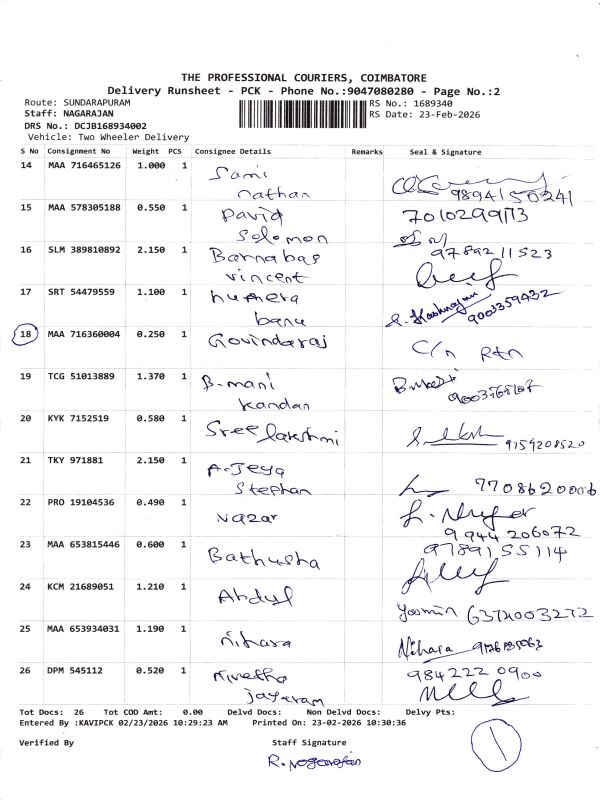 THE PROFESSIONAL COURIERS, COIMBATORE
Delivery Runsheet - PCK - Phone No.:9047080280 - Page No.:2
Route: SUNDARAPURAM RS No.: 1689340
Staff: NAGARAJAN RS Date: 23-Feb-2026
DRS No.: DCJB168934002
Vehicle: Two Wheeler Delivery
S No Consignment No Weight PCS Consignee Details Remarks Seal & Signature
14 MAA 716465126 1.000 1 Sami
nathan 9894150241
15 MAA 578305188 0.550 1 David 7010299113
Solomon
16 SLM 389810892 2.150 1 Barnabas 9789211523
vincent
17 SRT 54479559 1.100 1 humera
banu 9003359432
18 MAA 716360004 0.250 1 Govindaraj C/n Rtn
19 TCG 51013889 1.370 1 B-mani
kandan
20 KYK 7152519 0.580 1 Sree lakshmi 9159208520
21 TKY 971881 2.150 1 A-Jeya
Stephan 7708620006
22 PRO 19104536 0.490 1 Nazar
9944206072
23 MAA 653815446 0.600 1 Bathusha 9789155114
24 KCM 21689051 1.210 1 Abdul Yasmin 6372003272
25 MAA 653934031 1.190 1 nihara Nihara
26 DPM 545112 0.520 1 Nivetha 984222 0900
jayaram
Tot Docs: 26 Tot COD Amt: 0.00 Delvd Docs: Non Delvd Docs: Delvy Pts:
Entered By :KAVIPCK 02/23/2026 10:29:23 AM Printed On: 23-02-2026 10:30:36
1
Verified By Staff Signature
R.Nagarajan